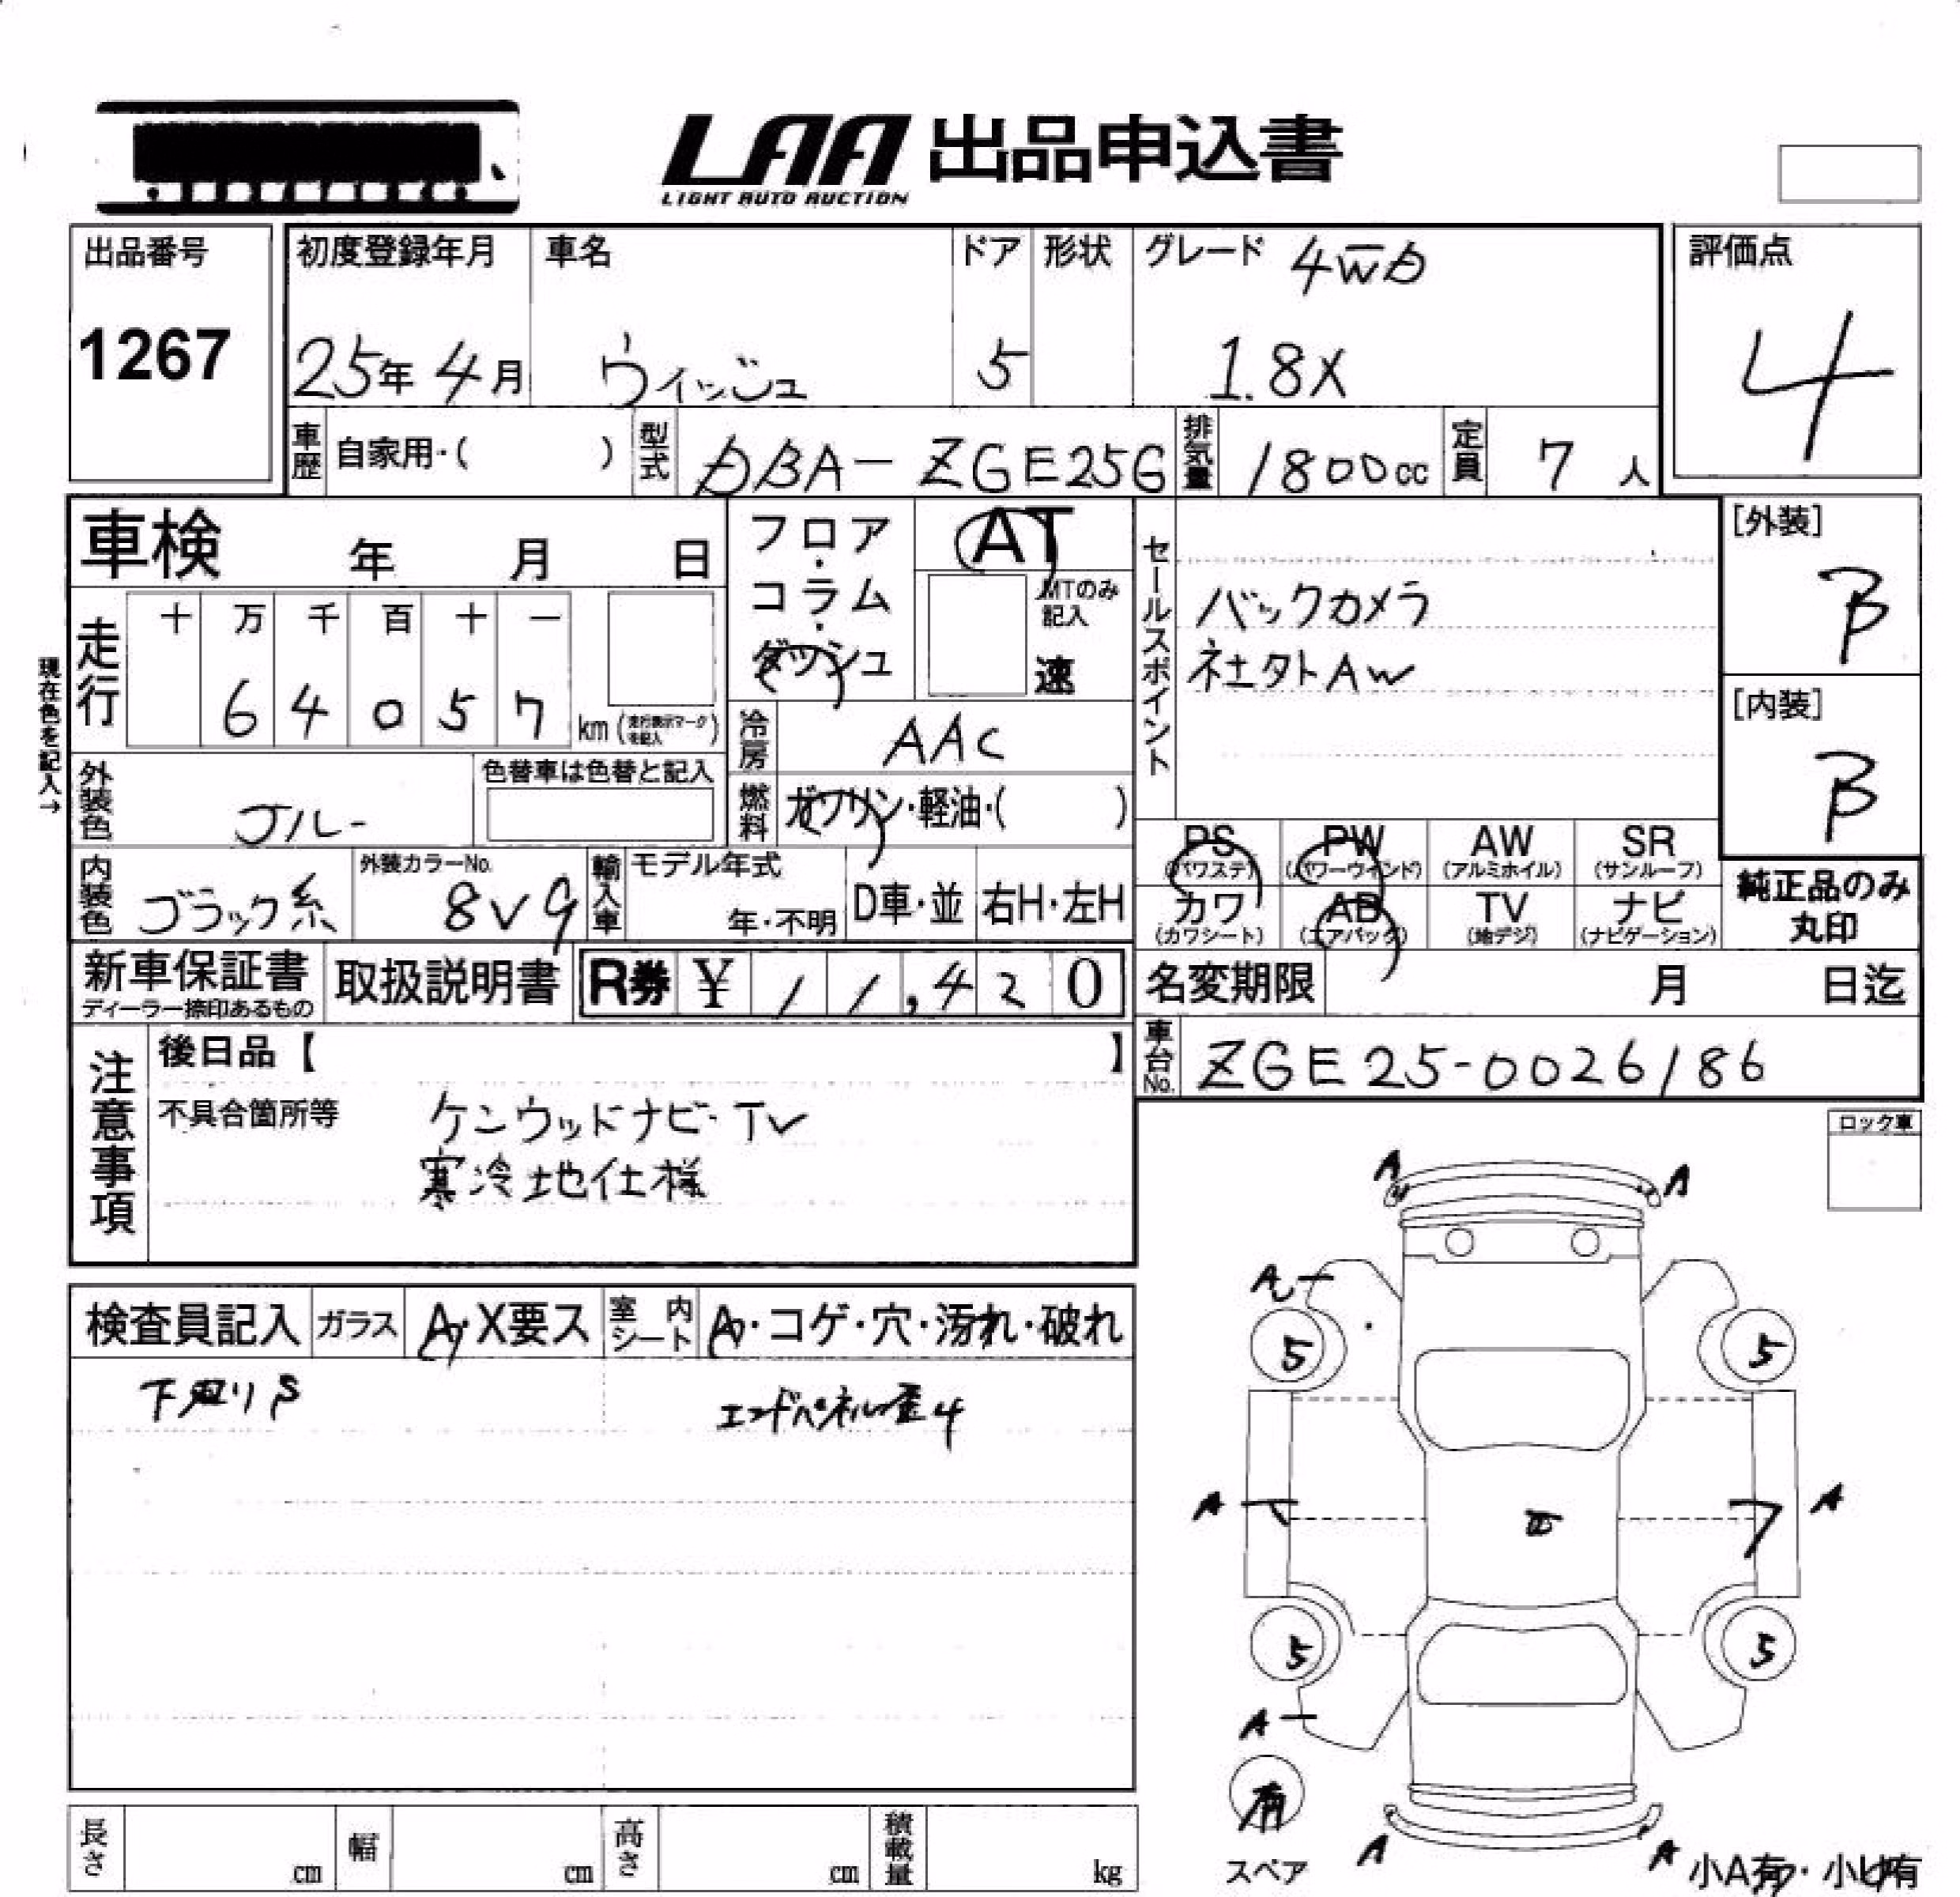 LAA 出品申込書
LIGHT AUTO AUCTION
出品番号
1267
初度登録年月
25年 4月
車名
ウィッシュ
ドア
5
形状
グレード 4WD
1.8X
評価点
4
車歴 自家用・( )
型式 DBA-ZGE25G
排気量 1800cc
定員 7人
車検 年 月 日
フロア・コラム・ダッシュ
AT
MTのみ記入
速
セールスポイント
バックカメラ
社外AW
[外装]
B
[内装]
B
現在色を記入→
走行
十 万 千 百 十 一
6 4 0 5 7 km (走行表示マークを記入)
冷房 AAC
燃料 ガソリン・軽油・( )
外装色 ブルー
色替車は色替と記入
内装色 ブラック系
外装カラーNo. 8V9
輸入車 モデル年式
年・不明
D車・並
右H・左H
PS (パワステ)
PW (パワーウィンド)
AW (アルミホイル)
SR (サンルーフ)
カワ (カワシート)
AB (エアバッグ)
TV (地デジ)
ナビ (ナビゲーション)
純正品のみ
丸印
新車保証書
ディーラー捺印あるもの
取扱説明書
R券 ¥11,420
名変期限 月 日迄
車台No. ZGE25-0026186
注意事項
後日品【 】
不具合箇所等
ケンウッドナビ・TV
寒冷地仕様
ロック車
検査員記入
ガラス A・X要ス
室内シート A・コゲ・穴・汚れ・破れ
下廻りS
エンドパネル歪4
A A
A
5 5
A A
5 5
A
有
スペア
A A
小A有・小U有
長さ cm
幅 cm
高さ cm
積載量 kg